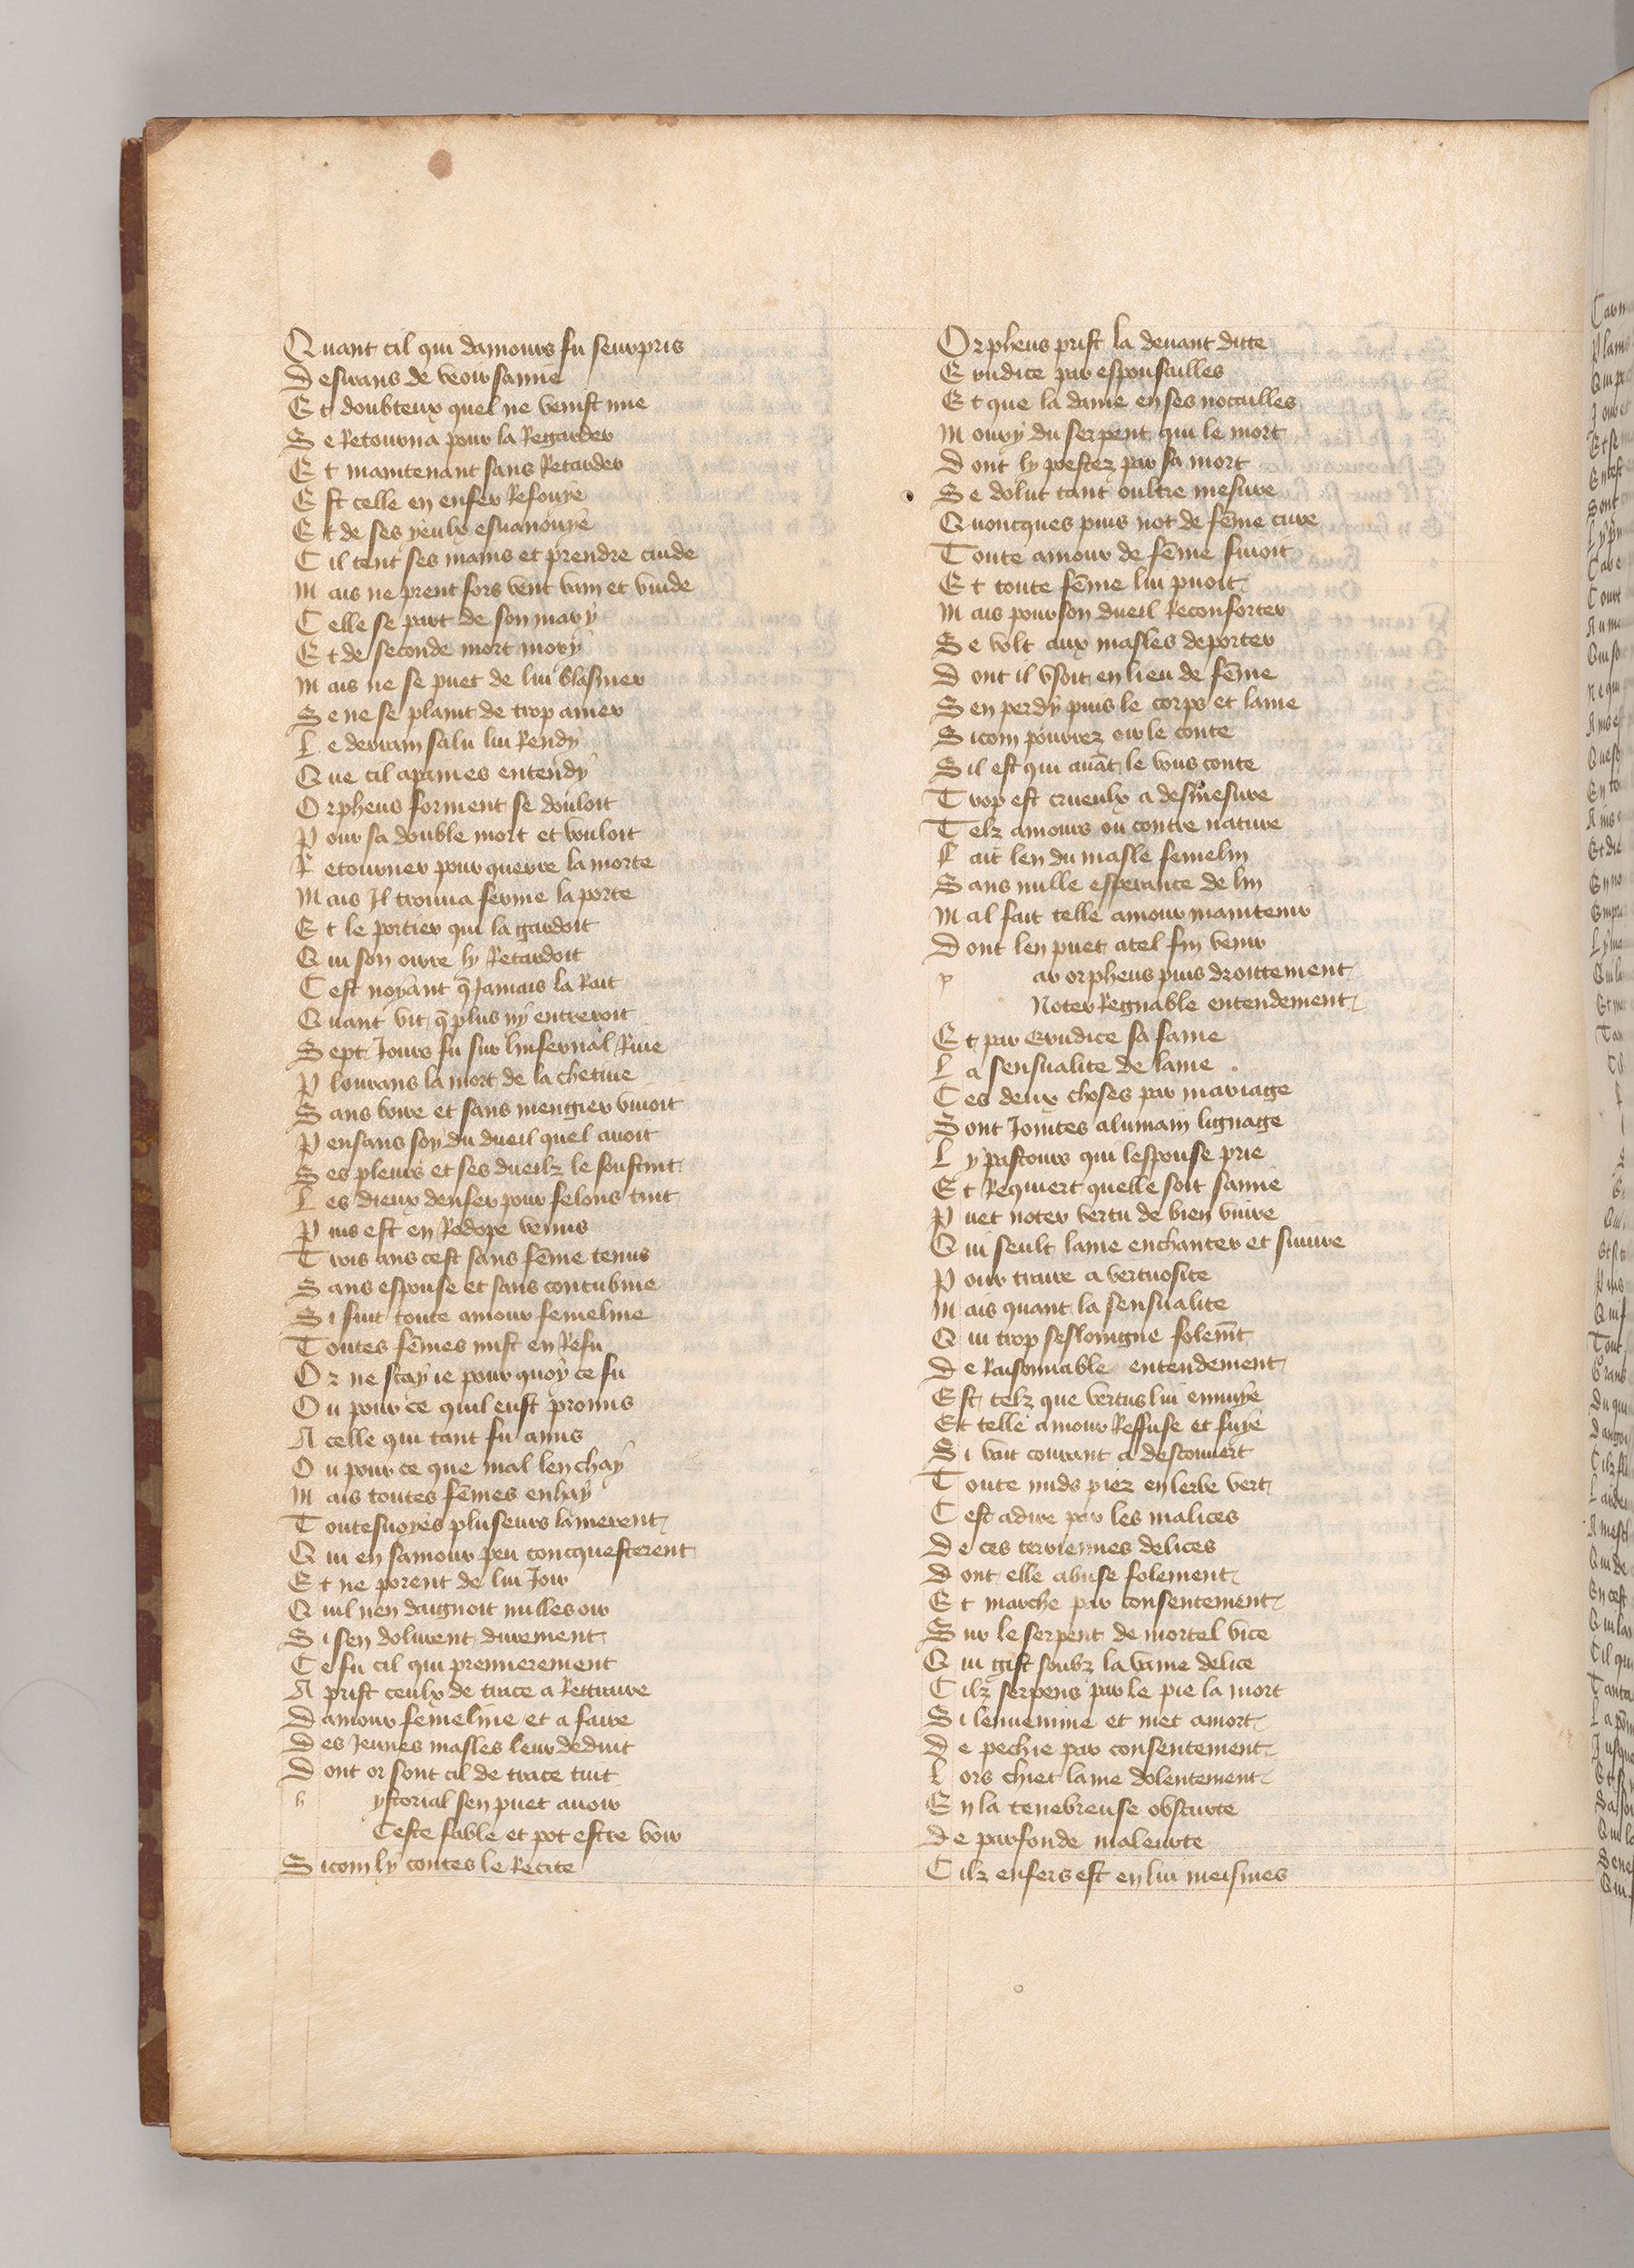 Quant cil qui damours fu seurpris
Desirans de veoir samie
Et doubteux quel ne venist mie
Se Retourna pour la Regarder
Et maintenant sans Retarder
Est celle en enfer Refouye
Et de ses yeulx esuanouye
Cil tent ses mains et prendre cuide
Mais ne prent fors vent vain et vuide
Celle se part de son mary
Et de seconde mort mory
Mais ne se puet de lui blasmer
Se ne se plaint de trop amer
Le derrain salu lui Rendy
Que cil apaines entendy
Orpheus forment se douloit
Pour sa double mort et vouloit
Retourner pour querre la morte
Mais Il trouua ferme la porte
Et le portier qui la gardoit
Qui son oirre ly Retardoit
Cest noyant q̄ Jamais la Rait
Quant vit q̄ plus ny entreroit
Sept Jours fu sur linfernal Riue
Plourans la mort de la chetiue
Sans boire et sans mengier viuoit
Pensans soy du dueil quel auoit
Ses pleurs et ses dueilz le soustint
Les dieux denfer pour felons tint
Puis est en Rodope venus
Trois ans cest sans fēme tenus
Sans espouse et sans concubine
Si fuit toute amour femeline
Toutes fēmes mist en Refu
Or ne scay ie pour quoy ce fu
Ou pour ce quil eust promis
A celle qui tant fu amis
Ou pour ce que mal len chay
Mais toutes fēmes enhay
Toutesuoyes pluseurs lamerent
Qui en samour peu concquesterent
Et ne porent de lui Joir
Quil nen daignoit nulles oir
Si sen dolurent durement
Ce fu cil qui premierement
Aprist ceulx de trace a Rettraire
Damour femeline et a faire
Des Jeunes masles leur deduit
Dont or sont cil de trace tuit
hystorial sen puet auoir
Ceste fable et pot estre voir
Sicom ly contes le Recite
Orpheus prist la deuant ditte
Erudice par espousailles
Et que la dame en ses nocailles
Moury du serpent qui le mort
Dont ly prestez par sa mort
Se dolut tant oultre mesure
Quoncques puis not de fēme cure
Toute amour de fēme fuioit
Et toute fēme lui puoit
Mais pour son dueil Reconforter
Se volt aux masles deporter
Dont il vsoit en lieu de fēme
Sen perdy puis le corps et lame
Sicom pourrez oir le conte
Sil est qui auāt le vous conte
Trop est crueulx a desmesure
Telz amours ou contre nature
Fait len du masle femelin
Sans nulle esperance de lin
Mal fait telle amour maintenir
Dont len puet atel fin venir
par orpheus puis droittement
Noter Regnable entendement
Et par Erudice sa fame
La sensualite de lame
Ces deux choses par mariage
Sont Jointes alumain lignage
Ly pastours qui lespouse prie
Et Requiert quelle soit samie
Puet noter vertu de bien viure
Qui seult lame enchanter et suiure
Pour traire a vertuosite
Mais quant la sensualite
Qui trop seslongne folemt̄
De Raisonnable entendement
Est telz que vertus lui ennuye
Et telle amour Reffuse et fuye
Si vait courant a descouuert
Toute nuds piez en lerbe vert
Cest adire par les malices
De ces terriennes delices
Dont elle abuse folement
Et marche par consentement
Sur le serpent de mortel vice
Qui gist soubz la vaine delice
Cilz serpens par le pie la mort
Si lenuenime et met amort
De pechie par consentement
Lors chiet lame dolentement
En la tenebreuse obscurte
De parfonde maleurte
Cilz enfers est en lui meismes